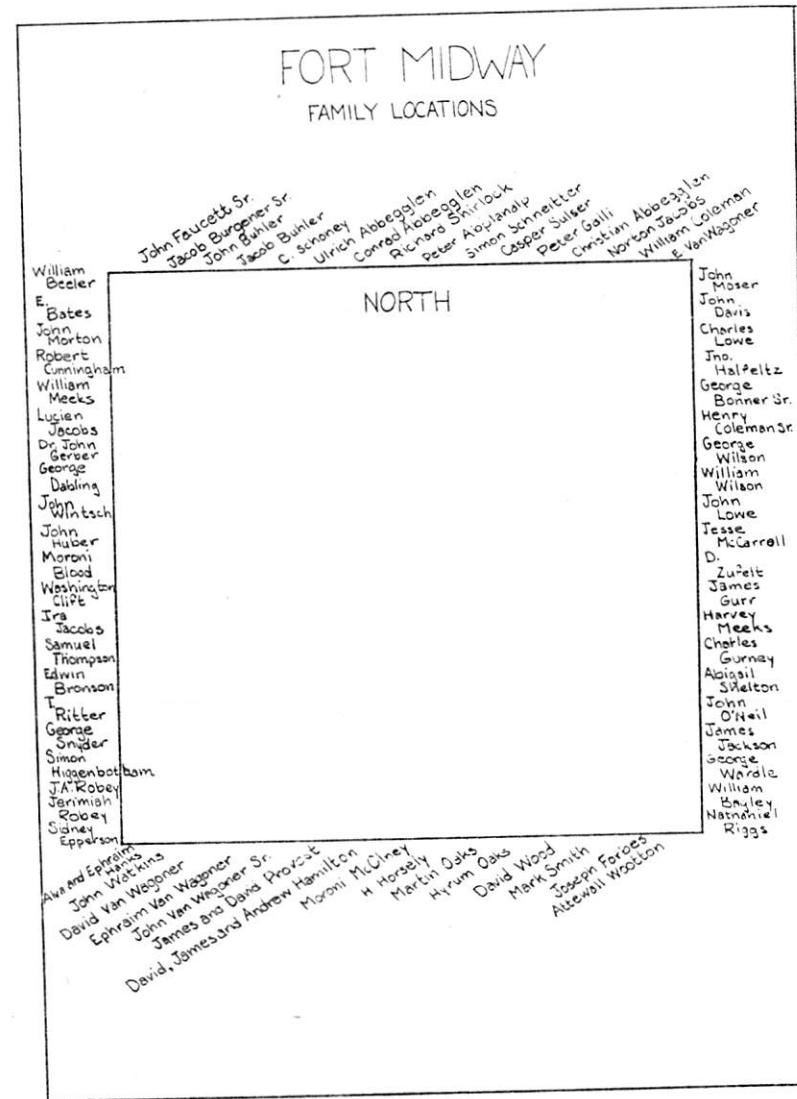 FORT MIDWAY
FAMILY LOCATIONS
John Faucett Sr.
Jacob Burgener Sr.
John Buhler
Jacob Buhler
C. Schoney
Ulrich Abbegglen
Conrad Abbegglen
Richard Shirlock
Peter
Simon Schneitter
Casper Sulser
Peter Galli
Christian Abbegglen
Norton Jacobs
William Coleman
E VanWagoner
NORTH
William
Beeler
E.
Bates
John
Morton
Robert
Cunningham
William
Meeks
Lucien
Jacobs
Dr. John
Gerber
George
Dabling
John
Wintsch
John
Huber
Moroni
Blood
Washington
Clift
Ira
Jacobs
Samuel
Thompson
Edwin
Bronson
T.
Ritter
George
Snyder
Simon
Higgenbotham
J.A. Robey
Jerimiah
Robey
Sidney
Epperson
John
Moser
John
Davis
Charles
Lowe
Jno.
Halfeltz
George
Bonner Sr.
Henry
Coleman Sr.
George
Wilson
William
Wilson
John
Lowe
Jesse
McCarrell
D.
Zufelt
James
Gurr
Harvey
Meeks
Charles
Gurney
Abigail
Shelton
John
O'Neil
James
Jackson
George
Wardle
William
Bayley
Nathaniel
Riggs
Alva and Ephraim
Hanks
John Watkins
David Van Wagoner
Ephraim Van Wagoner
John Van Wagoner Sr.
James and David Provost
David, James and Andrew Hamilton
Moroni McOlney
H Horsely
Martin Oaks
Hyrum Oaks
David Wood
Mark Smith
Joseph Forbes
Attewall Wootton